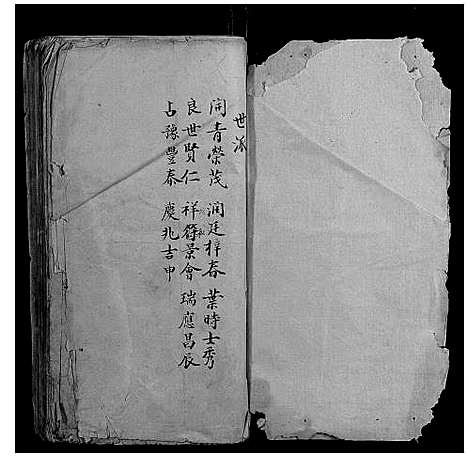 世派
開青榮茂 潤廷梓春 葉時士秀
良世賢仁 祥符景會 瑞應昌辰
占豫豐泰 慶兆吉申